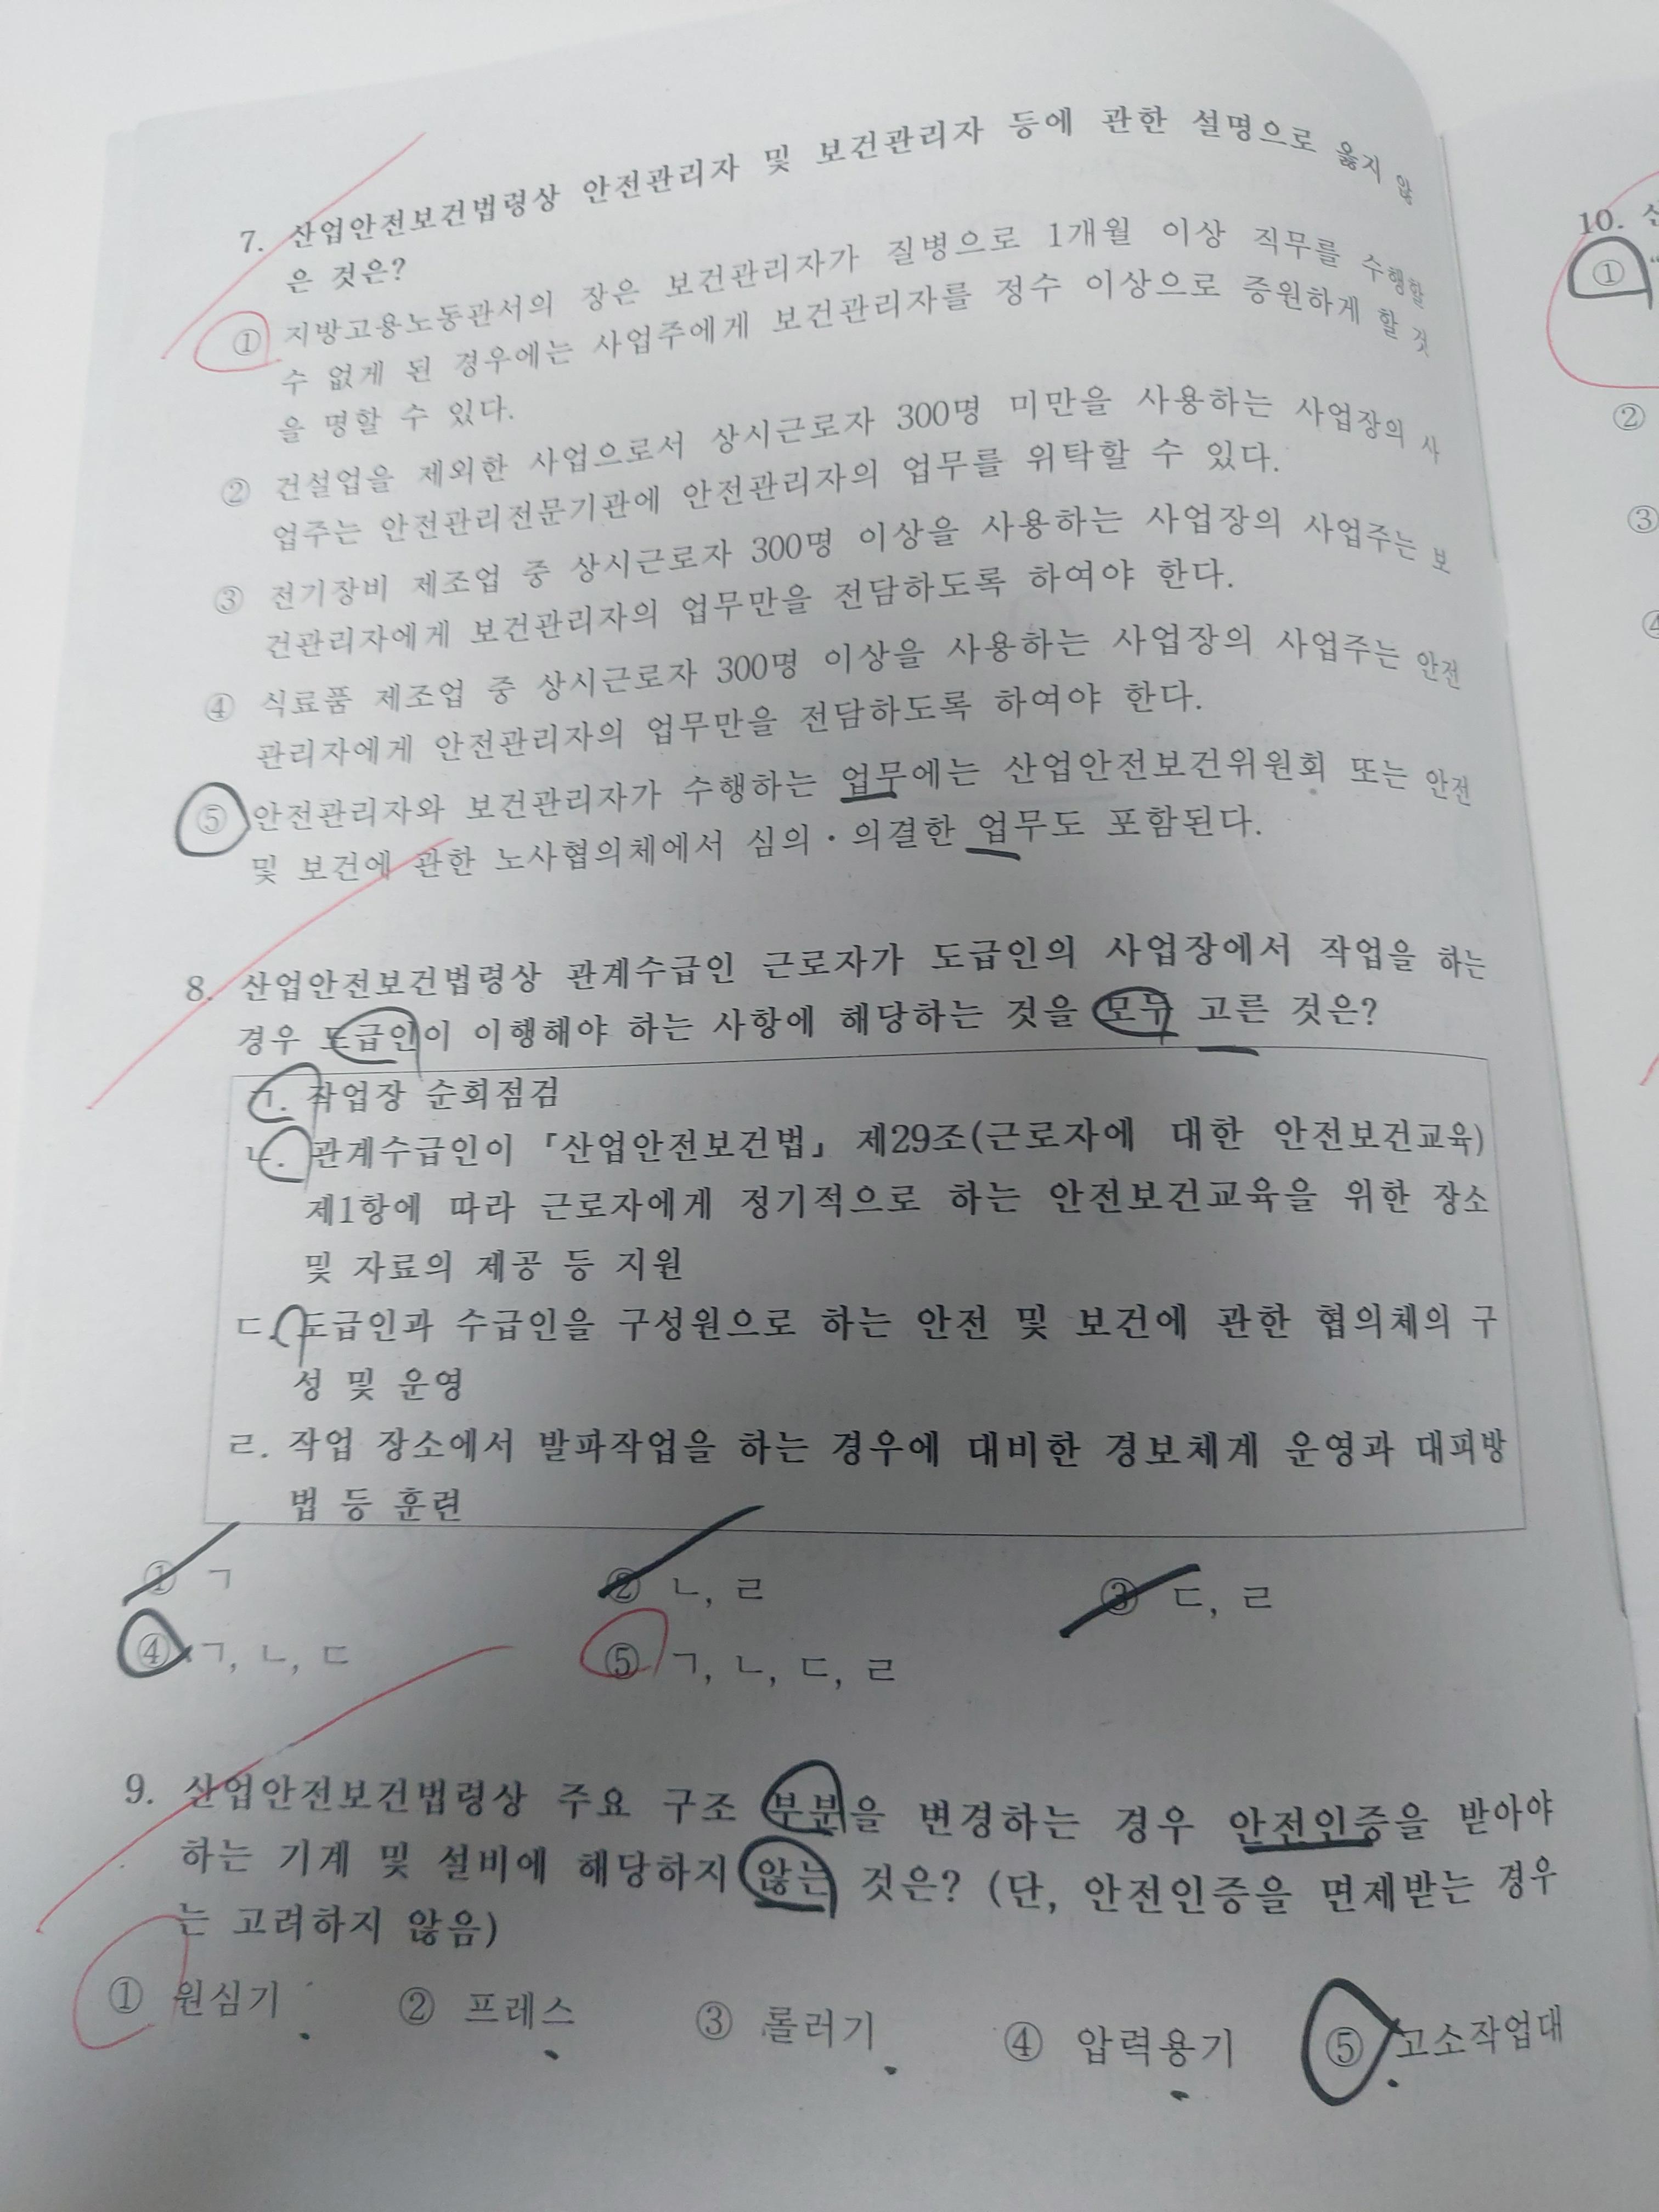 7. 산업안전보건법령상 안전관리자 및 보건관리자 등에 관한 설명으로 옳지 않
은 것은?
① 지방고용노동관서의 장은 보건관리자가 질병으로 1개월 이상 직무를 수행할
수 없게 된 경우에는 사업주에게 보건관리자를 정수 이상으로 증원하게 할 것
을 명할 수 있다.
② 건설업을 제외한 사업으로서 상시근로자 300명 미만을 사용하는 사업장의 사
업주는 안전관리전문기관에 안전관리자의 업무를 위탁할 수 있다.
③ 전기장비 제조업 중 상시근로자 300명 이상을 사용하는 사업장의 사업주는 보
건관리자에게 보건관리자의 업무만을 전담하도록 하여야 한다.
④ 식료품 제조업 중 상시근로자 300명 이상을 사용하는 사업장의 사업주는 안전
관리자에게 안전관리자의 업무만을 전담하도록 하여야 한다.
⑤ 안전관리자와 보건관리자가 수행하는 업무에는 산업안전보건위원회 또는 안전
및 보건에 관한 노사협의체에서 심의·의결한 업무도 포함된다.
8. 산업안전보건법령상 관계수급인 근로자가 도급인의 사업장에서 작업을 하는
경우 도급인이 이행해야 하는 사항에 해당하는 것을 모두 고른 것은?
ㄱ. 작업장 순회점검
ㄴ. 관계수급인이 「산업안전보건법」 제29조(근로자에 대한 안전보건교육)
제1항에 따라 근로자에게 정기적으로 하는 안전보건교육을 위한 장소
및 자료의 제공 등 지원
ㄷ. 도급인과 수급인을 구성원으로 하는 안전 및 보건에 관한 협의체의 구
성 및 운영
ㄹ. 작업 장소에서 발파작업을 하는 경우에 대비한 경보체계 운영과 대피방
법 등 훈련
① ㄱ ② ㄴ, ㄹ ③ ㄷ, ㄹ
④ ㄱ, ㄴ, ㄷ ⑤ ㄱ, ㄴ, ㄷ, ㄹ
9. 산업안전보건법령상 주요 구조 부분을 변경하는 경우 안전인증을 받아야
하는 기계 및 설비에 해당하지 않는 것은? (단, 안전인증을 면제받는 경우
는 고려하지 않음)
① 원심기 ② 프레스 ③ 롤러기 ④ 압력용기 ⑤ 고소작업대
10.
①
②
③